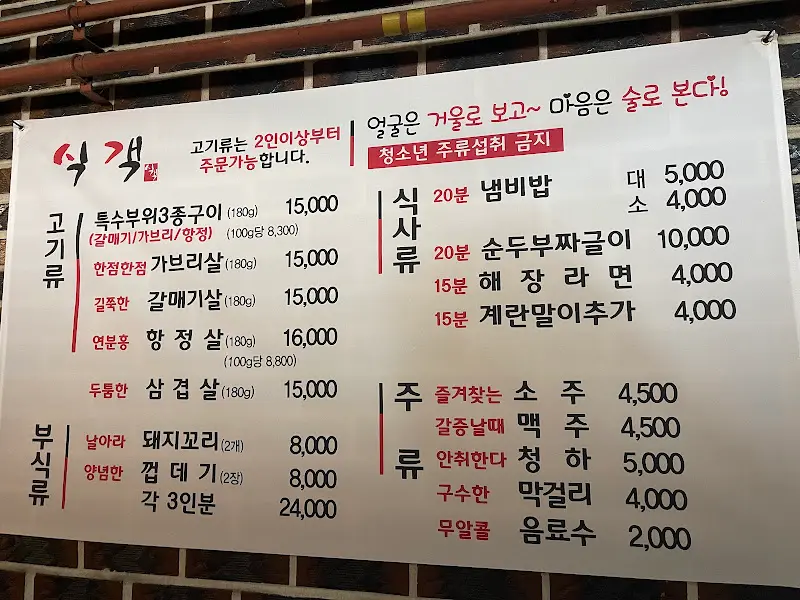 식객
식객
고기류는 2인이상부터
주문가능합니다.
얼굴은 거울로 보고~ 마음은 술로 본다!
청소년 주류섭취 금지
고기류
특수부위3종구이 (180g) 15,000
(갈매기/가브리/항정) (100g당 8,300)
한점한점 가브리살 (180g) 15,000
길쭉한 갈매기살 (180g) 15,000
연분홍 항정살 (180g) 16,000
(100g당 8,800)
두툼한 삼겹살 (180g) 15,000
부식류
날아라 돼지꼬리 (2개) 8,000
양념한 껍데기 (2장) 8,000
각 3인분 24,000
식사류
20분 냄비밥 대 5,000
소 4,000
20분 순두부짜글이 10,000
15분 해장라면 4,000
15분 계란말이추가 4,000
주류
즐겨찾는 소주 4,500
갈증날때 맥주 4,500
안취한다 청하 5,000
구수한 막걸리 4,000
무알콜 음료수 2,000